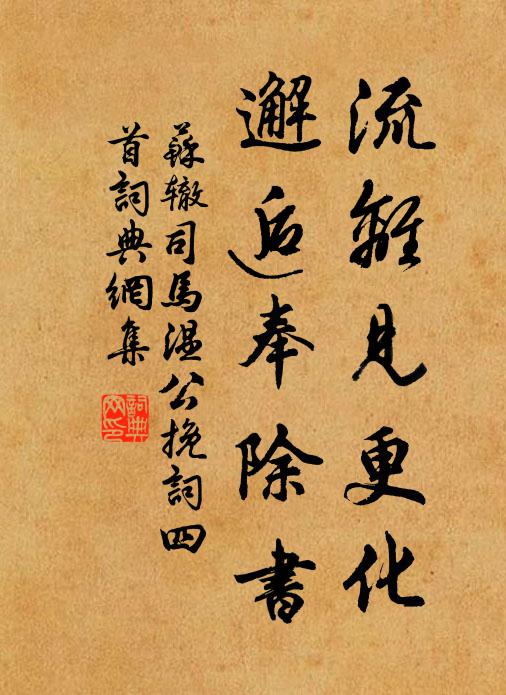 流離見更化
邂逅奉除書
蘇辙司馬溫公挽詞四
首詞典網集
詞典
网印